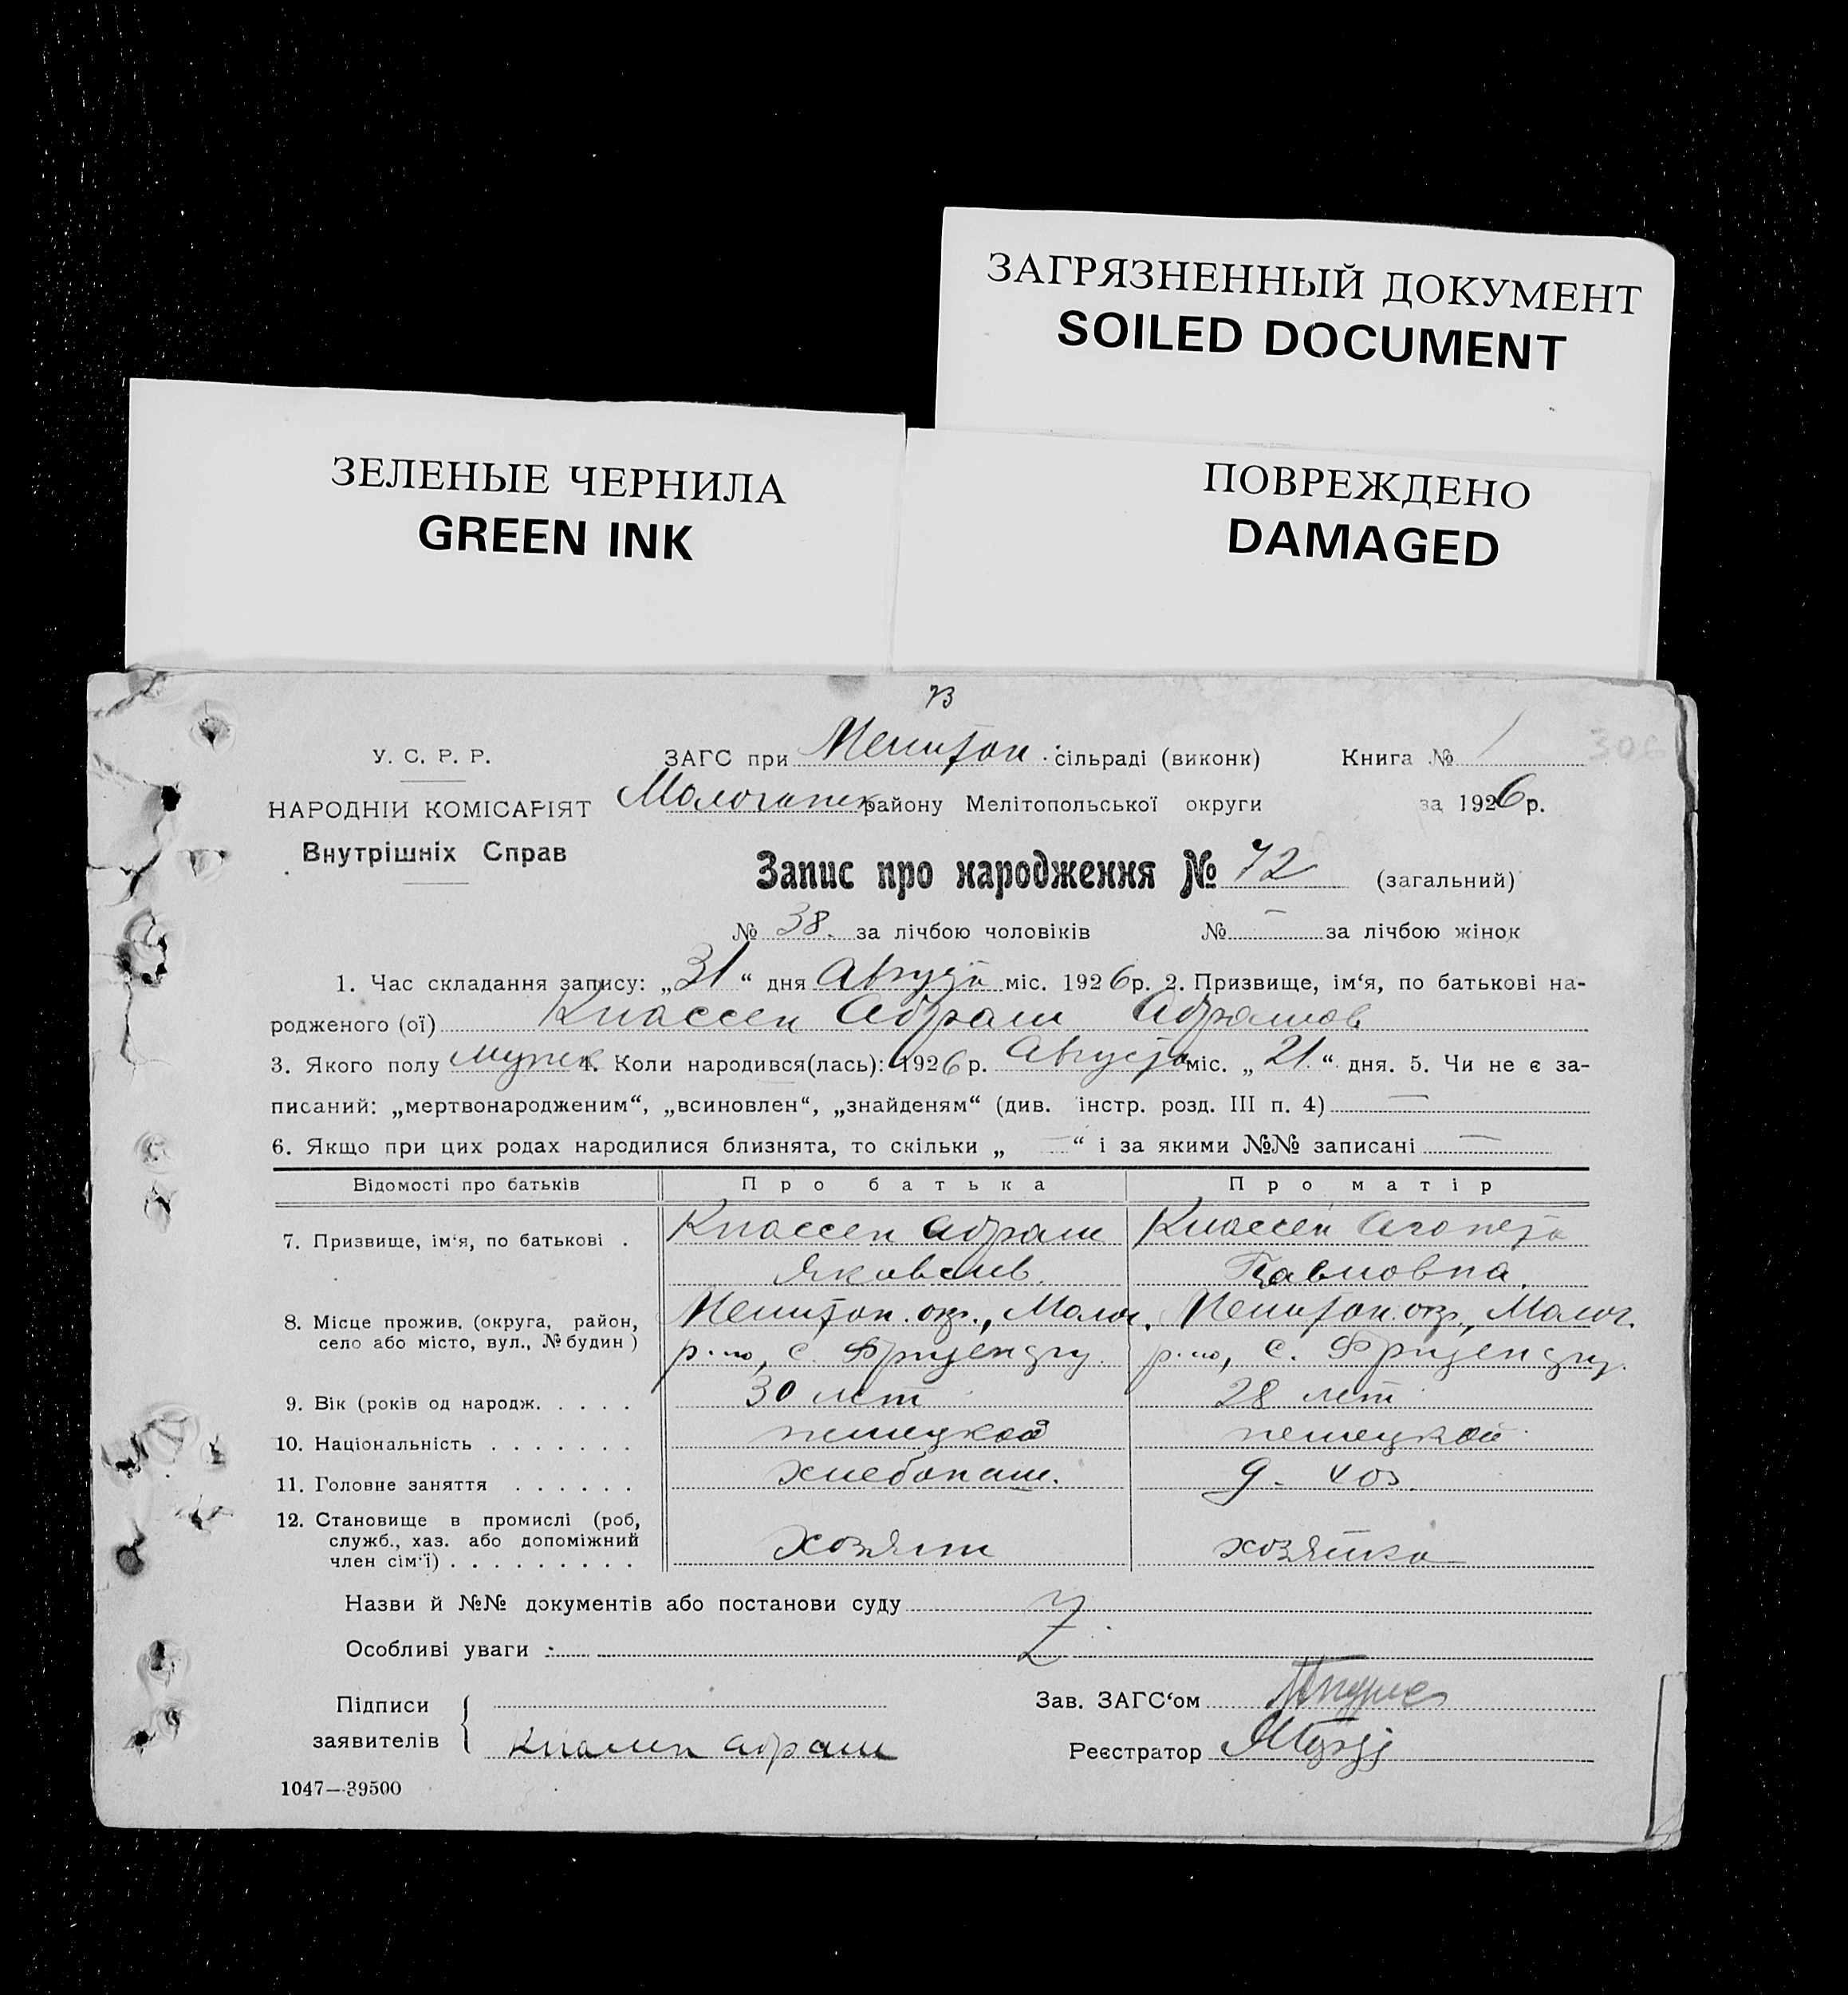 ЗАГРЯЗНЕННЫЙ ДОКУМЕНТ
SOILED DOCUMENT
ЗЕЛЕНЫЕ ЧЕРНИЛА
GREEN INK
ПОВРЕЖДЕНО
DAMAGED
73
У. С. Р. Р.
НАРОДНІЙ КОМІСАРІЯТ
Внутрішніх Справ
ЗАГС при сільраді (виконк) Книга № 1
306
Молочанск району Мелітопольської округи за 1926 р.
Запис про народження № 72 (загальний)
№ 38. за лічбою чоловіків № — за лічбою жінок
1. Час складання запису: „31“ дня Августа міс. 1926 р. 2. Призвище, ім‘я, по батькові на-
родженого (ої) Классен Абрам Абрамов
3. Якого полу мужск 4. Коли народився(лась): 1926 р. Августа міс. „21.“ дня. 5. Чи не є за-
писаний: „мертвонародженим“, „всиновлен“, „знайденям“ (див. інстр. розд. III п. 4) —
6. Якщо при цих родах народилися близнята, то скільки „ — “ і за якими №№ записані —
Відомості про батьків Про батька Про матір
7. Призвище, ім‘я, по батькові . Классен Абрам Классен Аганета
Яковлев. Павловна.
8. Місце прожив. (округа, район, Мелитоп. окр., Молоч. Мелитоп. окр., Молоч.
село або місто, вул., № будин) р-на, с. р-на, с.
9. Вік (років од народж. . . . . 30 лет 28 лет
10. Національність . . . . . . . немецкой немецкой
11. Головне заняття . . . . . . хлебопаш. д. хоз.
12. Становище в промислі (роб,
служб., хаз. або допоміжний
член сім‘ї) . . . . . . . . . хозяин хозяйка
Назви й №№ документів або постанови суду
Особливі уваги :
Підписи
заявителів
Классен Абрам
Зав. ЗАГС‘ом
Реєстратор
1047—39500